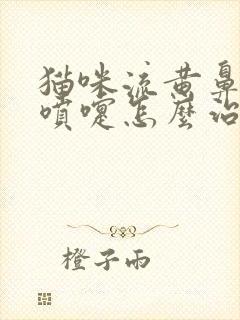 猫咪流黄鼻
喷嚏怎麼治
橙子雨